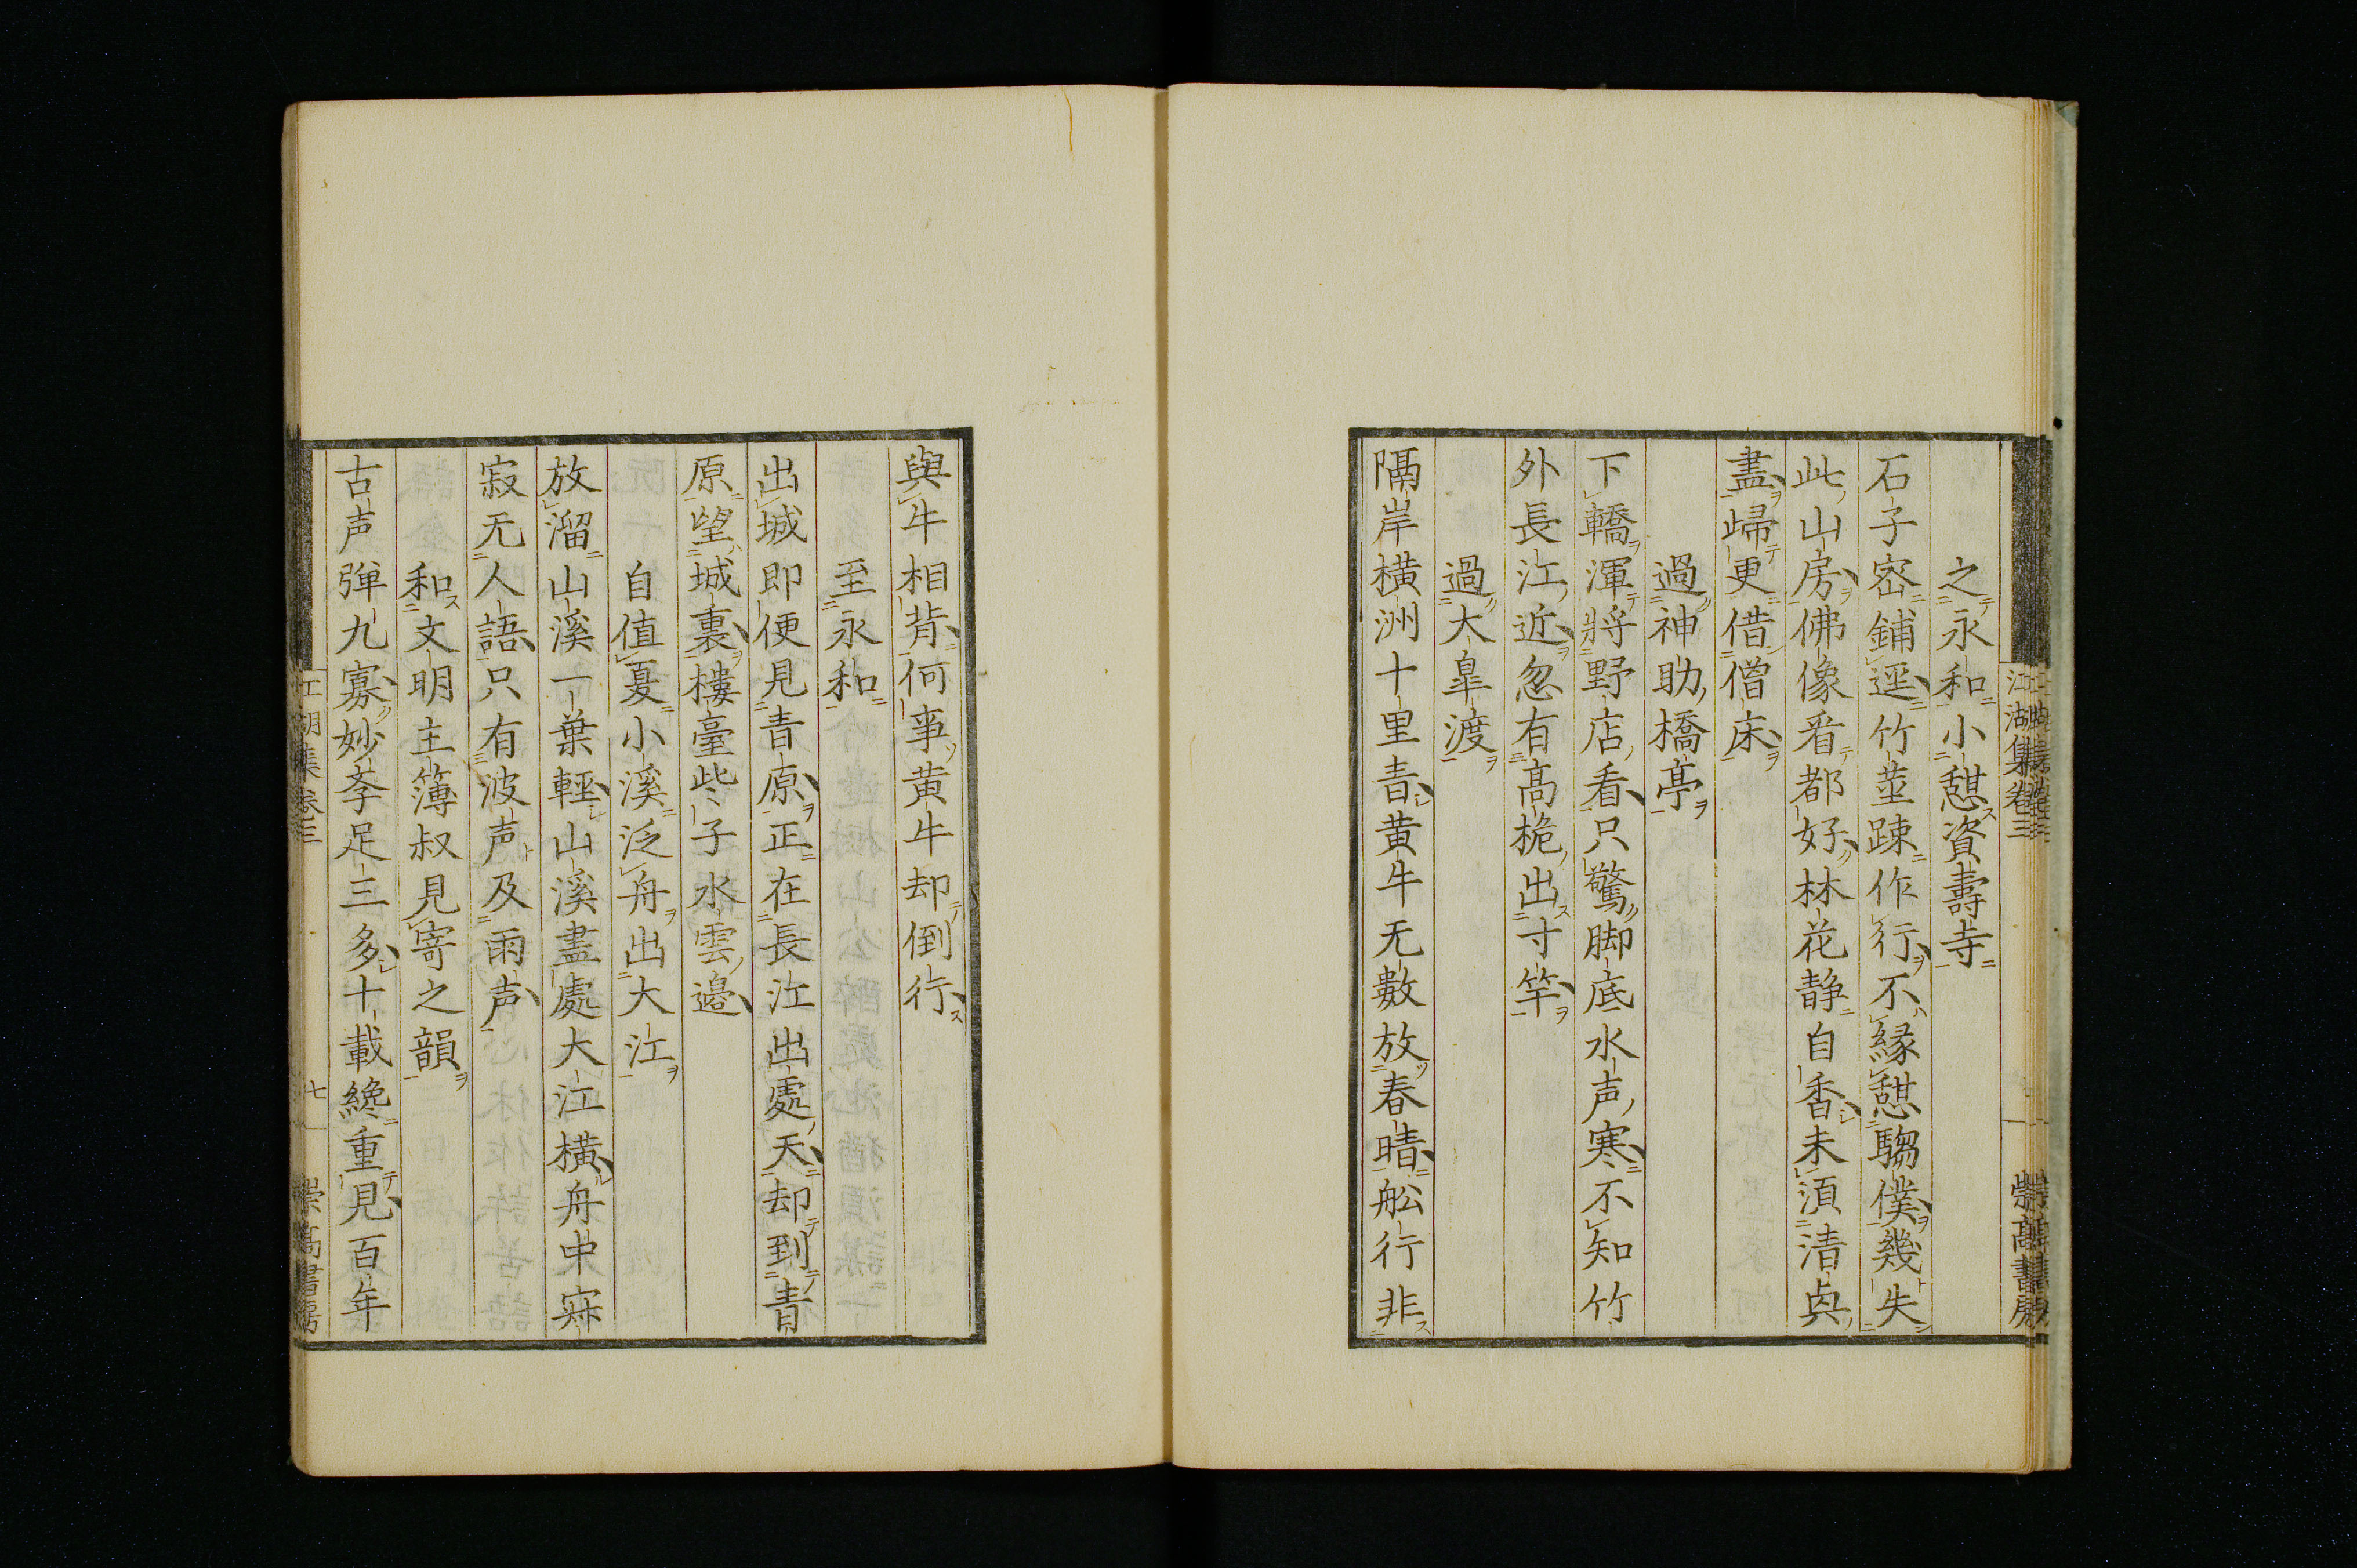 之永和小憇資壽寺
石子宻鋪逕竹莖踈作行不縁憇騶僕幾失
此山房佛像看都好林花静自香未湏清㒷
盡歸更借僧床
過神助橋亭
下轎渾將野店看只驚脚底水声寒不知竹
外長江近忽有髙桅出寸竿
過大皐渡
隔岸横洲十里青黄牛无數放春晴舩行非
與牛相背何事黄牛却倒行
至永和
出城即便見青原正在長江出處天却到青
原望城裏樓臺些子水雲邉
自值夏小溪泛舟出大江
放溜山溪一葉輕山溪盡處大江横舟中寐
寂无人語只有波声及雨声
和文明主簿叔見寄之韻
古声弾九寡妙孝足三多十載纔重見百年
江湖集卷三
崇髙書房
江湖集卷三
七
崇髙書房